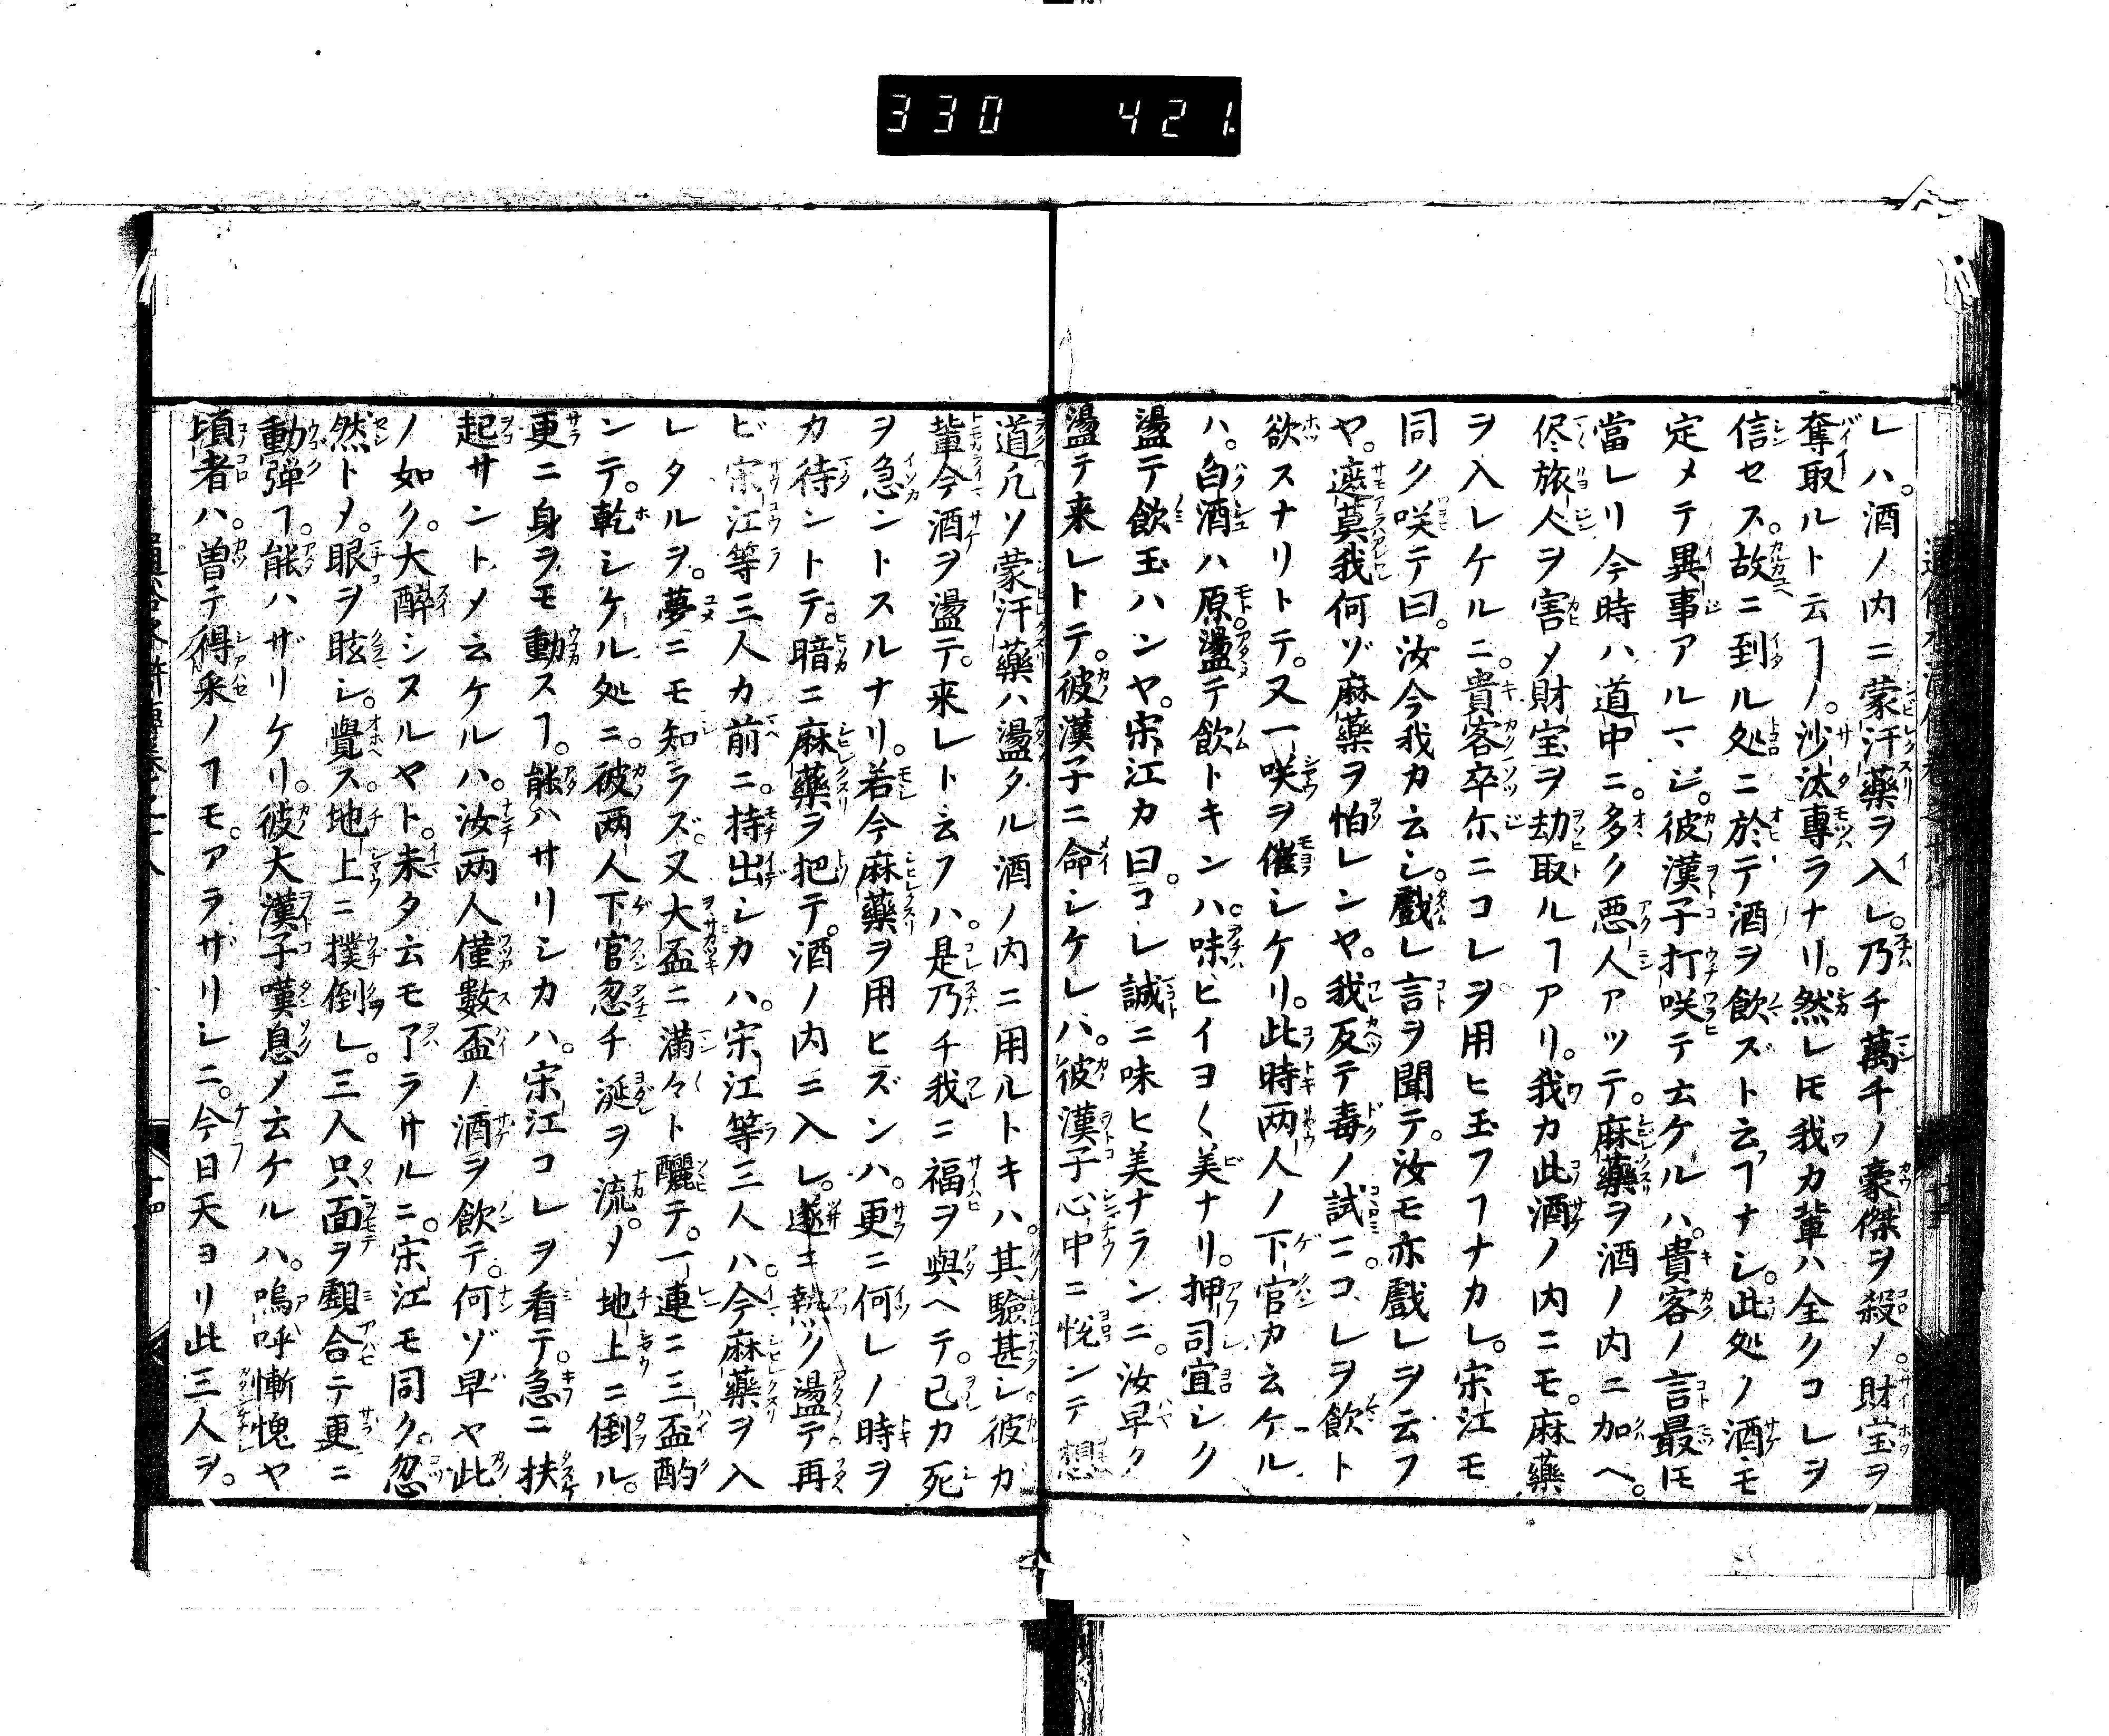 330 421.
レハ。酒ノ内ニ蒙汗藥ヲ入レ。乃チ萬千ノ豪傑ヲ殺メ。財宝ヲ
奪取ルト云ヿノ。沙汰專ラナリ。然レ𪜈我カ輩ハ全クコレヲ
信セス。故ニ到ル処ニ於テ酒ヲ飲ズト云ヿナシ。此処ノ酒モ
定メテ異事アルマジ。彼漢子打咲テ云ケルハ。貴客ノ言最𪜈
當レリ今時ハ道中ニ。多ク悪人アッテ。麻藥ヲ酒ノ内ニ加へ。
侭旅人ヲ害メ財宝ヲ劫取ルヿアリ。我カ此酒ノ内ニモ。麻藥
ヲ入レケルニ。貴客卒尓ニコレヲ用ヒ玉フヿナカレ。宋江モ
同ク咲テ曰。汝今我カ云シ。戯レ言ヲ聞テ。汝モ亦戯レヲ云フ
ヤ。遮莫我何ゾ麻藥ヲ怕レンヤ。我反テ毒ノ試ニ。コレヲ飲ト
欲スナリトテ。又一咲ヲ催シケリ。此時两人ノ下官カ云ケル
ハ。白酒ハ原盪テ飲トキンハ。味ヒイヨ〱美ナリ。押司宜シク
盪テ飲玉ハンヤ。宋江カ曰。コレ誠ニ味ヒ美ナランニ。汝早ク
盪テ来レトテ。彼漢子ニ命シケレハ。彼漢子心中ニ悦ンテ想
道凢ソ蒙汗藥ハ盪タル酒ノ内ニ用ルトキハ。其驗甚シ彼カ
輩今酒ヲ盪テ。来レト云フハ。是乃チ我ニ福ヲ與ヘテ。己カ死
ヲ急ントスルナリ。若今麻藥ヲ用ヒズンハ。更ニ何レノ時ヲ
カ待ントテ。暗ニ麻藥ヲ把テ。酒ノ内ニ入レ。遂ニ熱ク盪テ再
ビ宋江等三人カ前ニ。持出シカハ。宋江等三人ハ。今麻藥ヲ入
レタルヲ。夢ニモ知ラズ。又大盃ニ満々ト釃テ。一連ニ三盃酌
ンテ。乾シケル処ニ。彼两人下官忽チ涎ヲ流。メ地上ニ倒ル。
更ニ身ヲモ動スヿ。能ハサリシカハ。宋江コレヲ看テ。急ニ扶
起サントメ云ケルハ。汝两人僅數盃ノ酒ヲ飲テ。何ゾ早ヤ此
ノ如ク。大酔シヌルヤト。未タ云モ了ラサルニ。宋江モ同ク。忽
然トメ。眼ヲ眩シ。覺ス地上ニ撲倒レ。三人只面ヲ覷合テ更ニ
動弾ヿ。能ハザリケリ。彼大漢子嘆息メ云ケルハ。嗚呼慚愧ヤ
頃者ハ。曽テ得采ノヿモ。アラザリシニ。今日天ヨリ此三人ヲ。